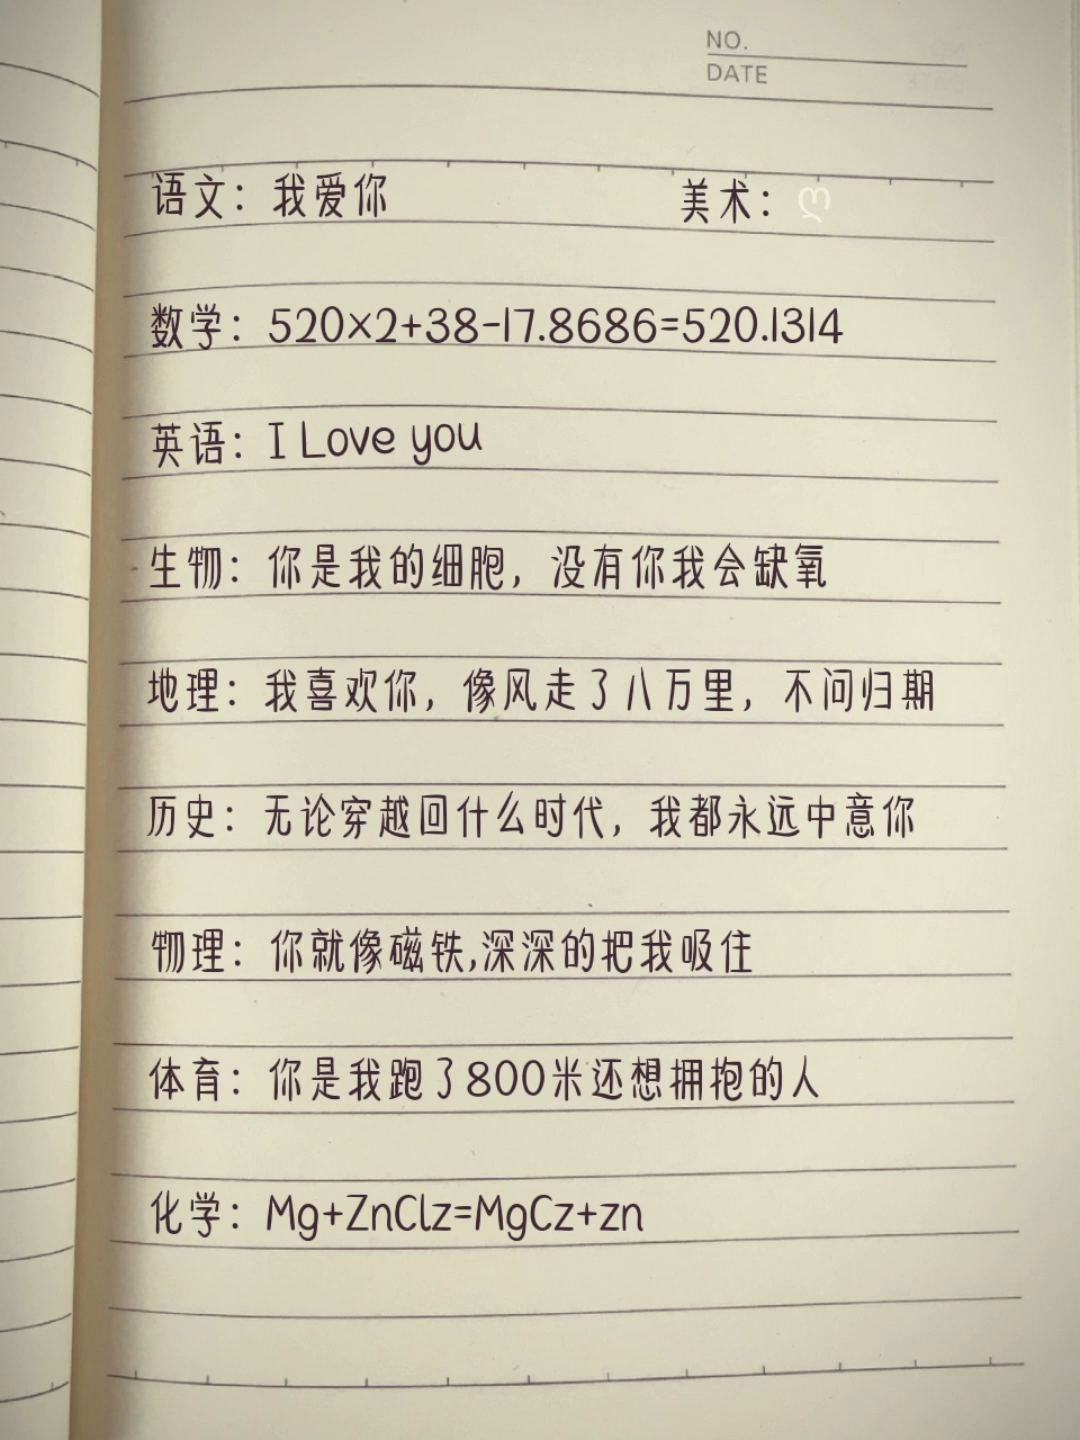 NO.
DATE
语文：我爱你 美术：ღ
数学：520×2+38-17.8686=520.1314
英语：I Love you
生物：你是我的细胞，没有你我会缺氧
地理：我喜欢你，像风走了八万里，不问归期
历史：无论穿越回什么时代，我都永远中意你
物理：你就像磁铁,深深的把我吸住
体育：你是我跑了800米还想拥抱的人
化学：Mg+ZnClz=MgCz+zn